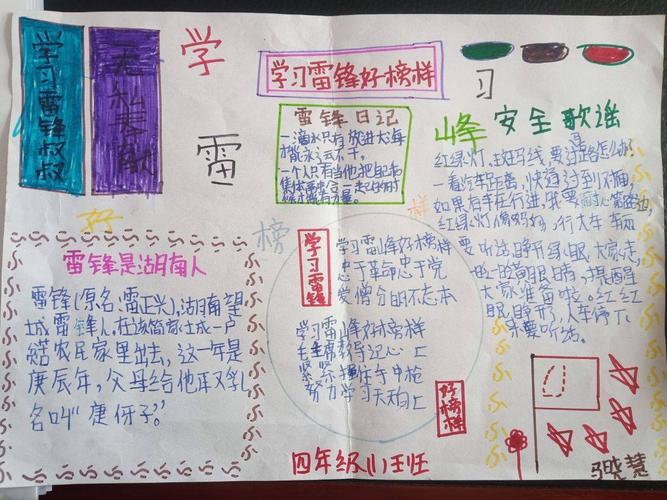 学习雷锋叔叔
无私奉献
学
雷
学习雷锋好榜样
习
好
榜
样
雷锋日记
一滴水只有放进大海
才能永远不干。
一个人只有当他把自己和
集体事业
一起的时候
才能有力量。
峰 安全歌谣
红绿灯,斑马线,要过路怎么办?
一看汽车距离,快速过到对面,
如果有车在行进,我要
红绿灯像妈妈,行人车辆
要听话睁开绿眼,大家走,
大家准备啦。红红
眼睁开,人车停下
来要听话。
雷锋是湖南人
雷锋(原名,雷正兴),湖南望
城雷锋人,在
一户
农民家里出去,这一年是
庚辰年,父母给他取乳
名叫“庚伢子。”
学习雷锋
学习雷锋好榜样
忠于革命忠于党
爱憎分明不忘本
学习雷锋好榜样
毛主席教导记心上
努力学习天天向上
好榜样
四年级(1)班
晓慧